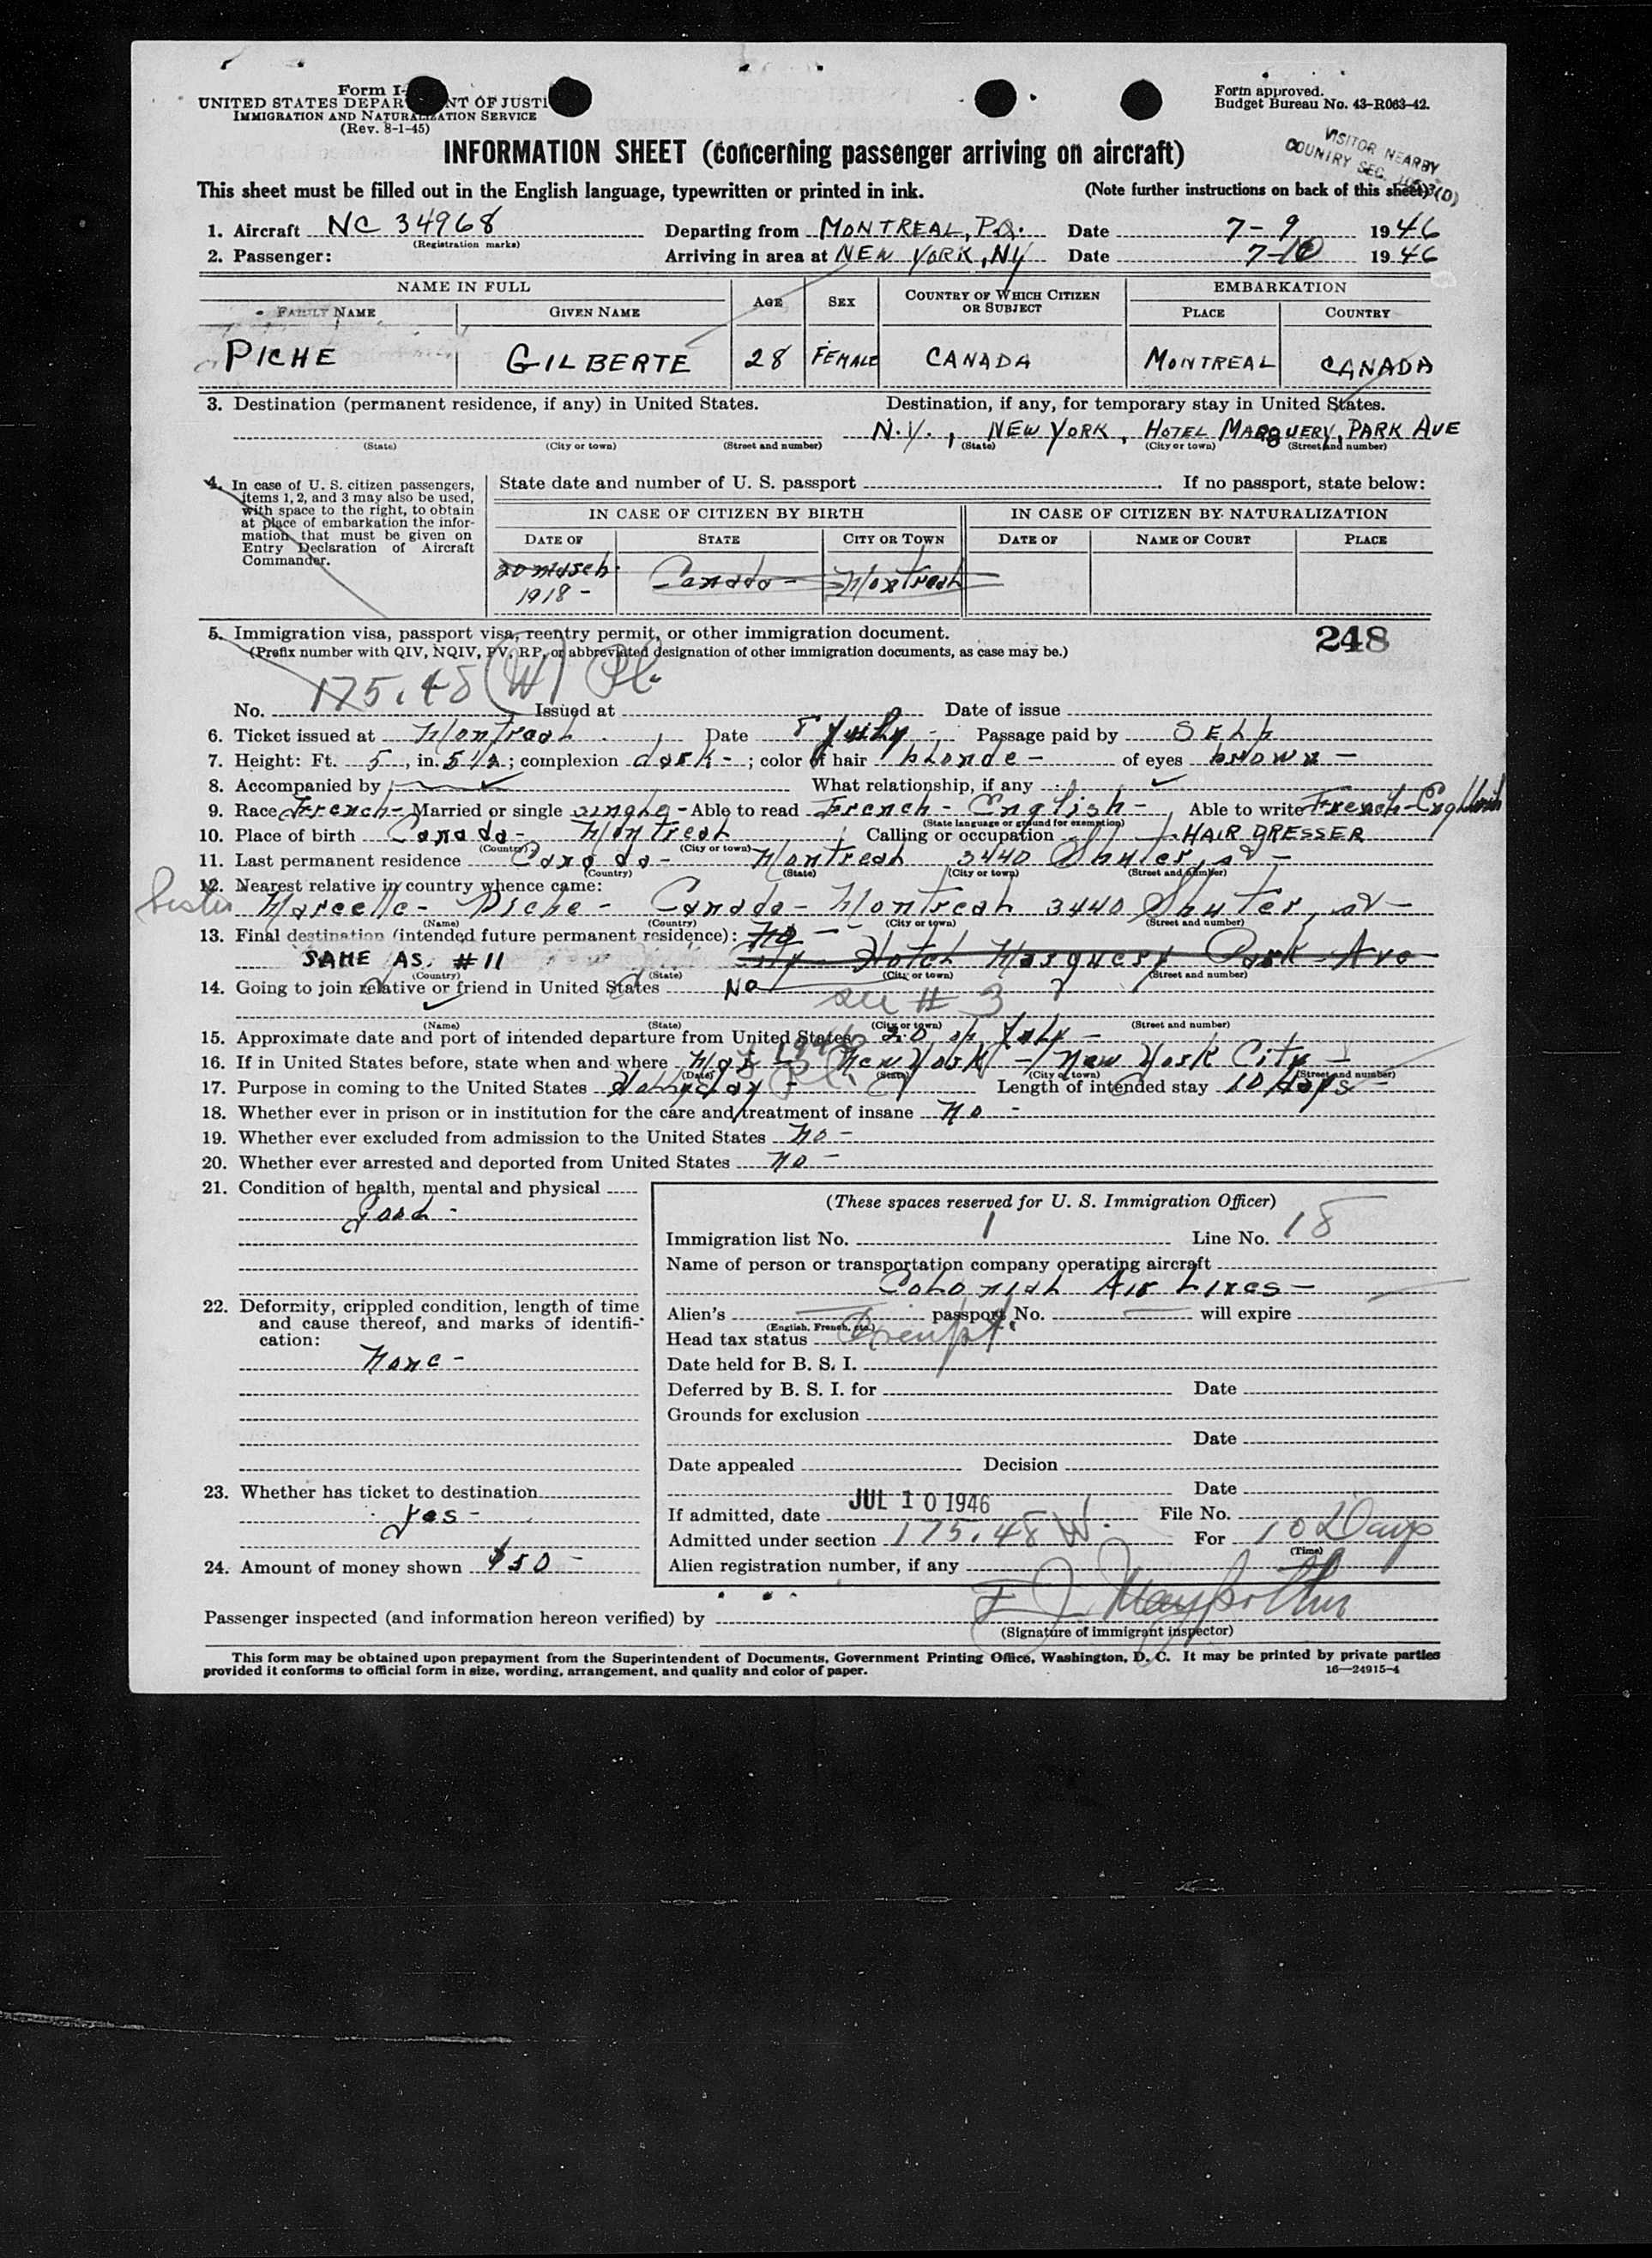 Form I-
UNITED STATES DEPAR NT OF JUSTI
IMMIGRATION AND NATURALIZATION SERVICE
(Rev. 8-1-45)
Form approved.
Budget Bureau No. 43-R063-42.
VISITOR NEARBY
COUNTRY SEC.
INFORMATION SHEET (concerning passenger arriving on aircraft)
This sheet must be filled out in the English language, typewritten or printed in ink. (Note further instructions on back of this sheet)
1. Aircraft NC 34968 Departing from MONTREAL, P.Q. Date 7-9 1946
(Registration marks)
2. Passenger: Arriving in area at NEW YORK, NY Date 7-10 1946
NAME IN FULL AGE SEX COUNTRY OF WHICH CITIZEN OR SUBJECT EMBARKATION
FAMILY NAME GIVEN NAME PLACE COUNTRY
PICHE GILBERTE 28 FEMALE CANADA MONTREAL CANADA
3. Destination (permanent residence, if any) in United States. Destination, if any, for temporary stay in United States.
N.Y., NEW YORK, HOTEL MARQUERY, PARK AVE
(State) (City or town) (Street and number) (State) (City or town) (Street and number)
4. In case of U. S. citizen passengers, items 1, 2, and 3 may also be used, with space to the right, to obtain at place of embarkation the information that must be given on Entry Declaration of Aircraft Commander.
State date and number of U. S. passport If no passport, state below:
IN CASE OF CITIZEN BY BIRTH IN CASE OF CITIZEN BY NATURALIZATION
DATE OF STATE CITY OR TOWN DATE OF NAME OF COURT PLACE
20 March 1918 - Canada - Montreal
5. Immigration visa, passport visa, reentry permit, or other immigration document. 248
(Prefix number with QIV, NQIV, PV, RP, or abbreviated designation of other immigration documents, as case may be.)
No. 175.48 (W) Issued at Date of issue
6. Ticket issued at Montreal Date 8 July - Passage paid by SELF
7. Height: Ft. 5, in. 5 1/2; complexion dark -; color of hair blonde - of eyes brown -
8. Accompanied by What relationship, if any
9. Race French - Married or single single - Able to read French - English - Able to write French - English
(State language or ground for exemption)
10. Place of birth Canada - Montreal Calling or occupation HAIR DRESSER
(Country) (City or town)
11. Last permanent residence Canada - Montreal 3440 Shuter, st -
(Country) (State) (City or town) (Street and number)
12. Nearest relative in country whence came:
Sister Marcelle - Piche - Canada - Montreal 3440 Shuter, st -
(Name) (Country) (City or town) (Street and number)
13. Final destination (intended future permanent residence): No -
SAME AS. #11 City - Hotel Marquery Park Ave
(Country) (State) (City or town) (Street and number)
14. Going to join relative or friend in United States No
see # 3
(Name) (State) (City or town) (Street and number)
15. Approximate date and port of intended departure from United States 20 of July -
16. If in United States before, state when and where May 1946 New York - New York City -
(Date) (State) (City or town) (Street and number)
17. Purpose in coming to the United States Holyday - Length of intended stay 10 days -
18. Whether ever in prison or in institution for the care and treatment of insane No -
19. Whether ever excluded from admission to the United States No -
20. Whether ever arrested and deported from United States No -
21. Condition of health, mental and physical
Good -
22. Deformity, crippled condition, length of time and cause thereof, and marks of identification:
None -
23. Whether has ticket to destination
yes -
24. Amount of money shown $50 -
(These spaces reserved for U. S. Immigration Officer)
Immigration list No. 1 Line No. 18
Name of person or transportation company operating aircraft
Colonial Air Lines -
Alien's passport No. will expire
(English, French, etc.)
Head tax status Exempt.
Date held for B. S. I.
Deferred by B. S. I. for Date
Grounds for exclusion
Date
Date appealed Decision
Date
If admitted, date JUL 10 1946 File No.
Admitted under section 175.48 W. For 10 Days
(Time)
Alien registration number, if any
Passenger inspected (and information hereon verified) by
(Signature of immigrant inspector)
This form may be obtained upon prepayment from the Superintendent of Documents, Government Printing Office, Washington, D. C. It may be printed by private parties
provided it conforms to official form in size, wording, arrangement, and quality and color of paper. 16—24915-4